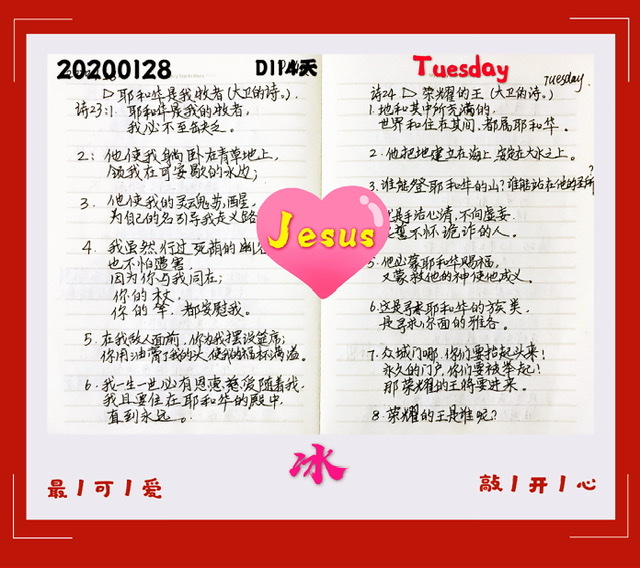 20200128
D114天
Tuesday
Tuesday.
▷耶和华是我牧者(大卫的诗。).
诗23:1. 耶和华是我的牧者,
我必不至缺乏。
2: 他使我躺卧在青草地上,
领我在可安歇的水边;
3. 他使我的灵魂苏醒,
为自己的名引导我走义路
4. 我虽然行过死荫的幽
也不怕遭害,
因为你与我同在;
你的杖,
你的竿,都安慰我。
5. 在我敌人面前,你为我摆设筵席;
你用油膏了我的头,使我的福杯满溢。
6. 我一生一世必有恩惠、慈爱随着我,
我且要住在耶和华的殿中,
直到永远。
Jesus
诗24 ▷ 荣耀的王(大卫的诗。)
1.地和其中所充满的,
世界和住在其间,都属耶和华.
2.他把地建立在海上,安定在大水之上。
3.谁能登耶和华的山?谁能站在他的圣所?
是手洁心清,不向虚妄.
不怀诡诈的人。
5.他必蒙耶和华赐福,
又蒙救他的神使他成义。
6.这是寻求耶和华的族类,
是寻求你面的雅各。
7.众城门哪,你们要抬起头来!
永久的门户,你们要被举起!
那荣耀的王将要进来。
8.荣耀的王是谁呢?
冰
最|可|爱
敲|开|心